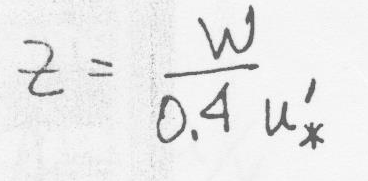 z = W / 0.4 u'_*